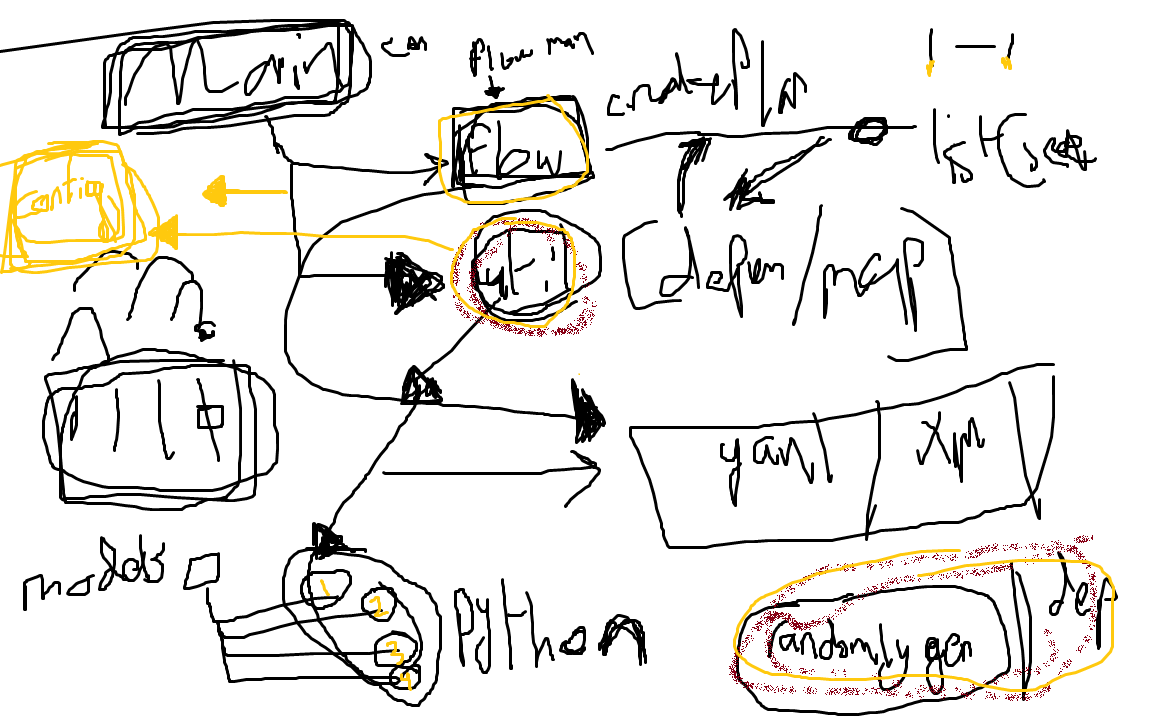 Main
flow man
flow
createplan
1 — 1
list
config
util
depen / map
yaml
xml
models
1
2
3
4
Python
randomly gen
dep